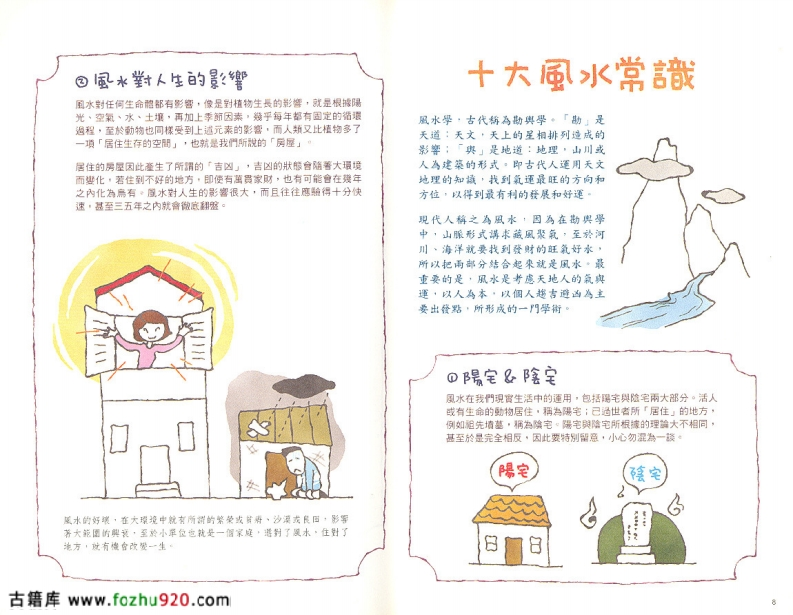 ②風水對人生的影響
風水對任何生命體都有影響，像是對植物生長的影響，就是根據陽
光、空氣、水、土壤，再加上季節因素，幾乎每年都有固定的循環
過程，至於動物也同樣受到上述元素的影響，而人類又比植物多了
一項「居住生存的空間」，也就是我們所說的「房屋」。
居住的房屋因此產生了所謂的「吉凶」，吉凶的狀態會隨著大環境
而變化，若住到不好的地方，即使有萬貫家財，也有可能會在幾年
之內化為烏有。風水對人生的影響很大，而且往往應驗得十分快
速，甚至三五年之內就會徹底翻盤。
風水的好壞，在大環境中就有所謂的繁榮或貧瘠、沙漠或良田，影響
著大範圍的興衰，至於小單位也就是一個家庭，選對了風水，住對了
地方，就有機會改變一生。
十大風水常識
風水學，古代稱為勘輿學。「勘」是
天道：天文，天上的星相排列造成的
影響；「輿」是地道：地理，山川或
人為建築的形式。即古代人運用天文
地理的知識，找到氣運最旺的方向和
方位，以得到最有利的發展和好運。
現代人稱之為風水，因為在勘輿學
中，山脈形式講求藏風聚氣，至於河
川、海洋就要找到發財的旺氣好水，
所以把兩部分結合起來就是風水。最
重要的是，風水是考慮天地人的氣與
運，以人為本，以個人趨吉避凶為主
要出發點，所形成的一門學術。
①陽宅&陰宅
風水在我們現實生活中的運用，包括陽宅與陰宅兩大部分。活人
或有生命的動物居住，稱為陽宅；已過世者所「居住」的地方，
例如祖先墳墓，稱為陰宅。陽宅與陰宅所根據的理論大不相同，
甚至於是完全相反，因此要特別留意，小心勿混為一談。
陽宅
陰宅
8
古籍库 www.fozhu920.com